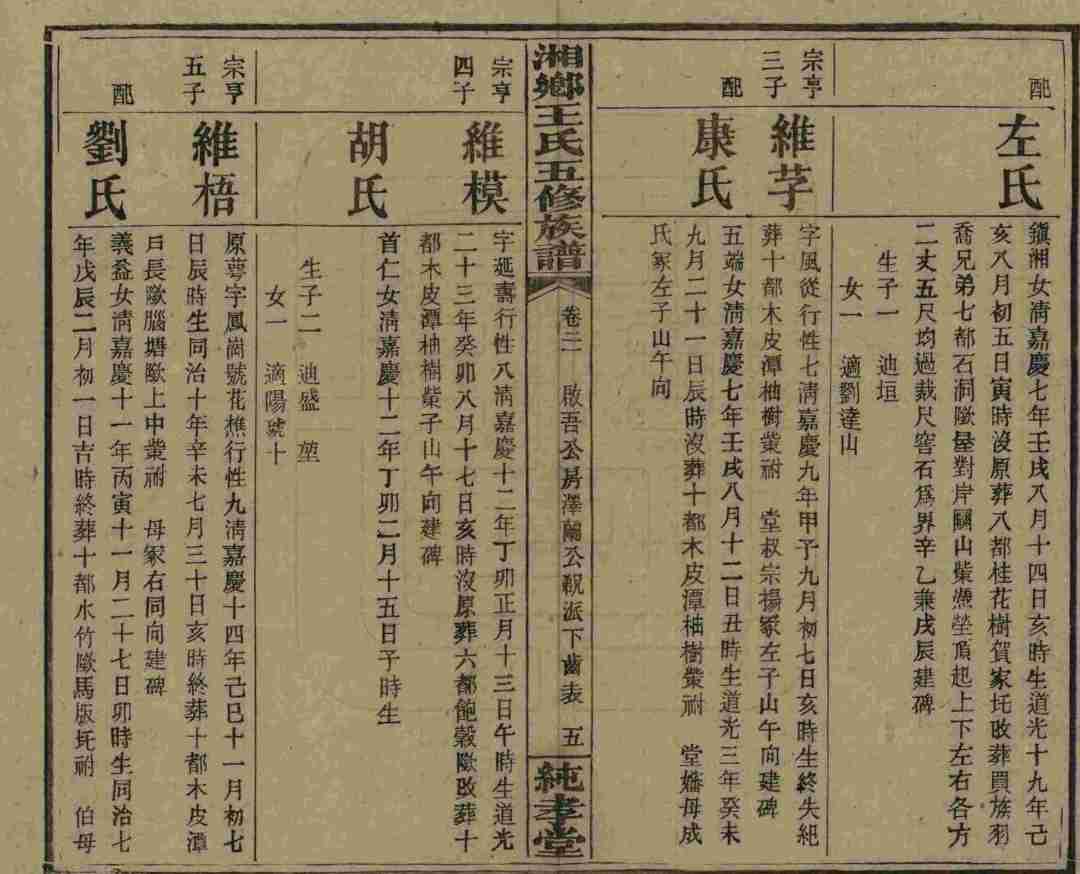 配
左氏
鎭湘女淸嘉慶七年壬戌八月十四日亥時生道光十九年己
亥八月初五日寅時沒原葬八都桂花樹賀家圫改葬買族羽
喬兄弟七都石洞歐屋對岸關山塋頂起上下左右各方
二丈五尺均過裁尺窖石爲界辛乙兼戌辰建碑
生子一 迪垣
女一 適劉達山
宗亨
三子
維芓
字風從行性七淸嘉慶九年甲子九月初七日亥時生終失紀
葬十都木皮潭柚樹祔 堂叔宗揚冢左子山午向建碑
配
康氏
五端女淸嘉慶七年壬戌八月十二日丑時生道光三年癸未
九月二十一日辰時沒葬十都木皮潭柚樹祔 堂嬸母成
氏冢左子山午向
湘鄉王氏五修族譜
卷三 啟吾公房澤蘭公派下齒表 五
純孝堂
宗亨
四子
維模
字延壽行性八淸嘉慶十二年丁卯正月十三日午時生道光
二十三年癸卯八月十七日亥時沒原葬六都飽穀歐改葬十
都木皮潭柚樹子山午向建碑
胡氏
首仁女淸嘉慶十二年丁卯二月十五日子時生
生子二 迪盛 堃
女一 適陽號十
宗亨
五子
維梧
原萼字鳳崗號花樵行性九淸嘉慶十四年己巳十一月初七
日辰時生同治十年辛未七月三十日亥時終葬十都木皮潭
戶長歐腦塘歐上中祔 母冢右同向建碑
配
劉氏
義益女淸嘉慶十一年丙寅十一月二十七日卯時生同治七
年戊辰二月初一日吉時終葬十都水竹歐馬版圫祔 伯母